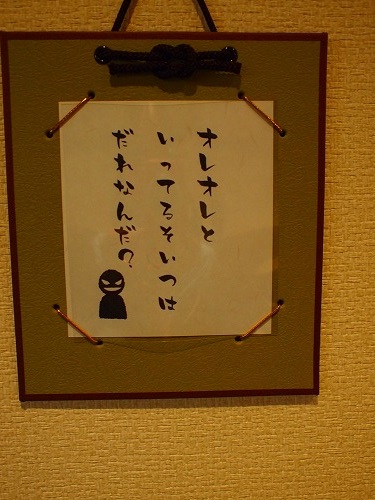 オレオレと
いってるそいつは
だれなんだ?